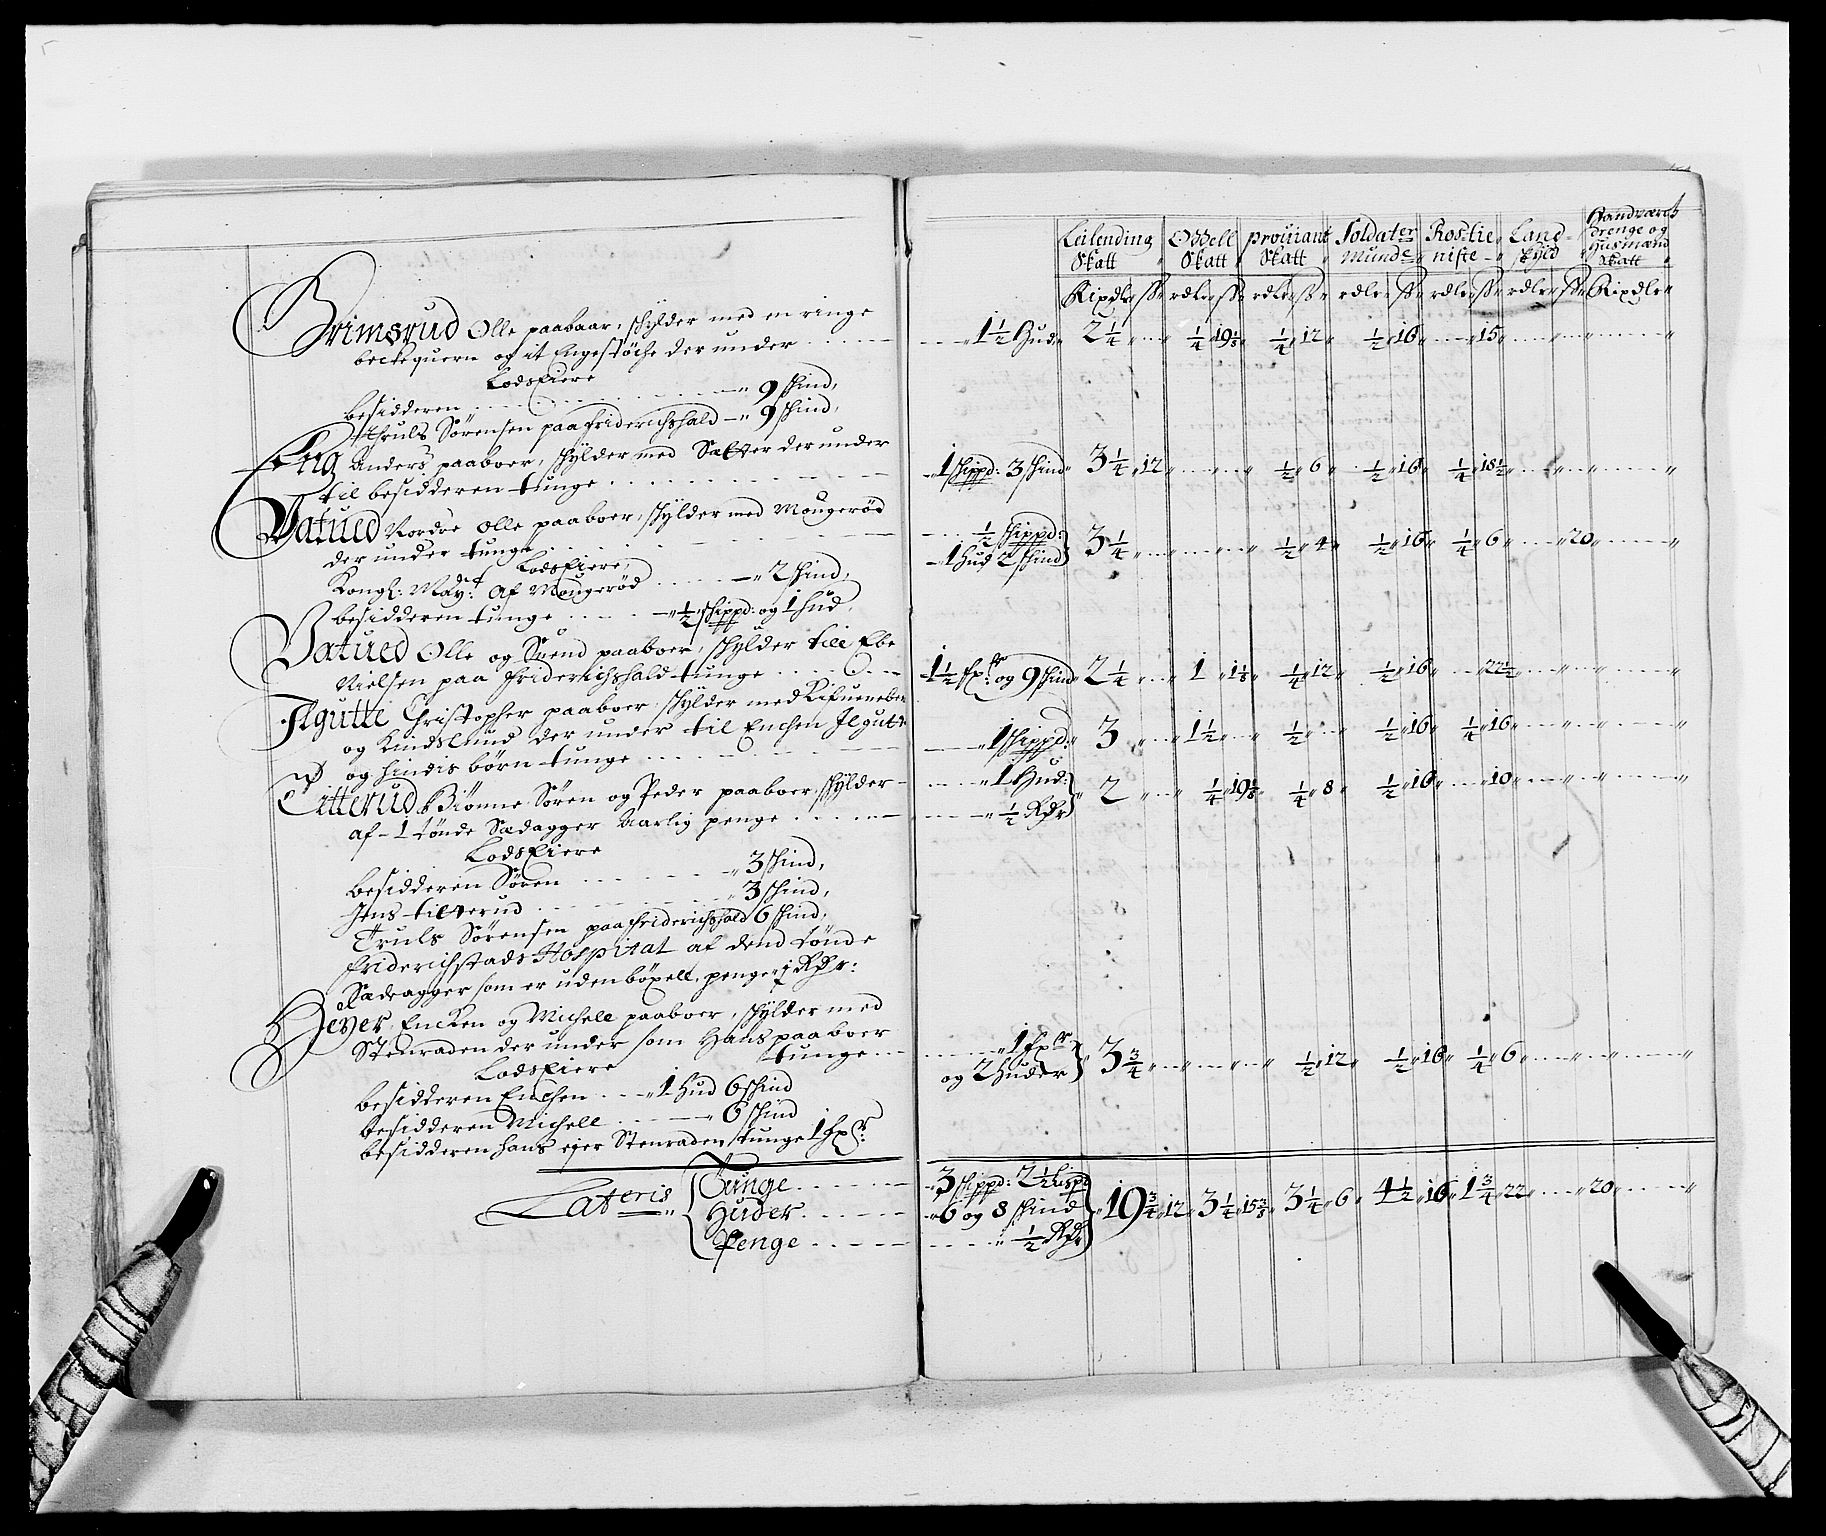 Grimsrud Olle paaboar, skylder med en ringe
beckequern og it Engestøche der under
LodsEiere
besidderen - 9 skind,
Thruls Sørensen paa friderichshald - 9 skind,
Eng Anders paaboer, skylder med Sætter der under
til besidderen tunge
Vatued Nordre Olle paaboer, skylder med Mougerød
der under tunge
LodsEiere,
Kongl: May:det af Mougerød - 2 skind,
besidderen tunge - ½ skippd: og 1 hud,
Vatued Olle og Suend paaboer, skylder till Ebe
Nielsen paa friderichshald tunge
Ilgutte Christopher paaboer skylder med
og Kindslund der under til Enchen Ilgutte
og hindis børn tunge
Titterud Biønne Søren og Peder paaboer, skylder
af - 1 tønde Sædagger Aarlig penge
LodsEiere
besidderen Søren - 3 skind,
Jens titterud - 3 skind,
Truls Sørensen paa friderichshald 6 skind,
friderichstads Hospital af dend tønde
Sædeagger som er uden bøxell, penge
Encken og Michell paaboer, skylder med
Stenraden der under som Hans paaboer
tunge
LodsEiere
besidderen Enchen - 1 hud 6 skind
besidderen Michell - 6 skind
besidderen hans ejer Stenraden tunge 1 fxr:
Lateris Tunge
Huder
Penge
Leilending Skatt Odell Skatt proviant Skatt Soldater Munde Rostieniste Land skyld Handværch Drenge og Husmænd skatt
Rixdlr ss rdlr ss rdlr ss rdlr ss rdlr ss rdlr ss Rixdlr
1½ Hud 2¼ ¼ 19⅛ ¼ 12 ½ 16 15
1 skippd: 3 skind 3¼ 12 ½ 6 ½ 16 ¼ 18½
½ skippd:
1 hud 2 skind 3¼ ½ 4 ½ 16 ¼ 6 20
1½ fxr: og 9 skind 2¼ 1 1⅛ ¼ 12 ½ 16 22½
1 skippd: 3 1½ ½ ½ 16 ¼ 16
1 Hud: 2 ¼ 19⅛ ¼ 8 ½ 16 10
½ Rdr
1 fxr
og 2 huder 3¾ ½ 12 ½ 16 ¼ 6
3 skippd: 2½ lispd
6 og 8 skind 19¾ 12 3¼ 15⅜ 3¼ 6 4½ 16 1¾ 22 20
½ Rdr